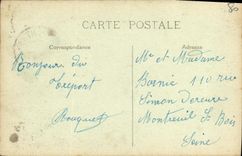 80
CARTE POSTALE
Correspondance
Adresse
Bonjour du
Tréport
Bouquet
Mr et Madame
Bornie 110 rue
Simon dereure
Montreuil Ss Bois
Seine